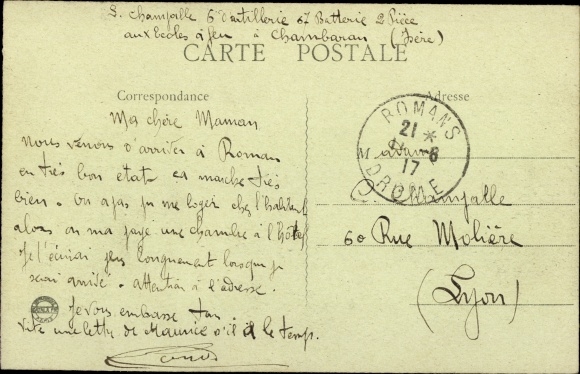 L. Champalle 6 d'artillerie 67 Batterie 2 Pièce
aux Ecoles à feu à Chambaran (Isère)
CARTE POSTALE
Correspondance
Adresse
Ma chère Maman
Nous venons d'arriver à Roman
en très bon état ca marche très
bien. On a pas pu me loger chez l'habitant
alors on ma payé une chambre à l'hôtel
Je t'écrirai plus longuement lorsque je
serai arrivé. Attention à l'adresse.
Je vous embrasse
Vite une lettre de Maurice s'il a le temps.
ROMANS
21 *
6
17
DROME
Madame
C. Champalle
60 Rue Molière
(Lyon)